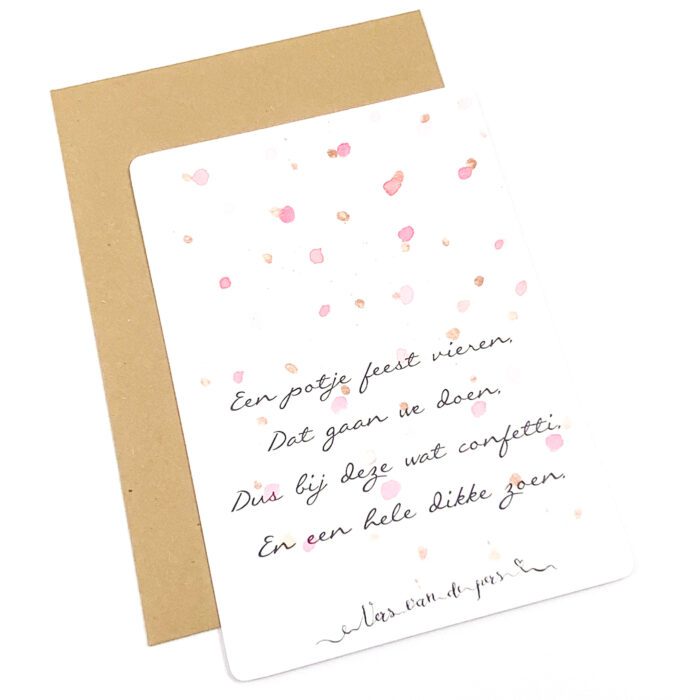 Een potje feest vieren.
Dat gaan we doen.
Dus bij deze wat confetti.
En een hele dikke zoen.
Vers van de pers